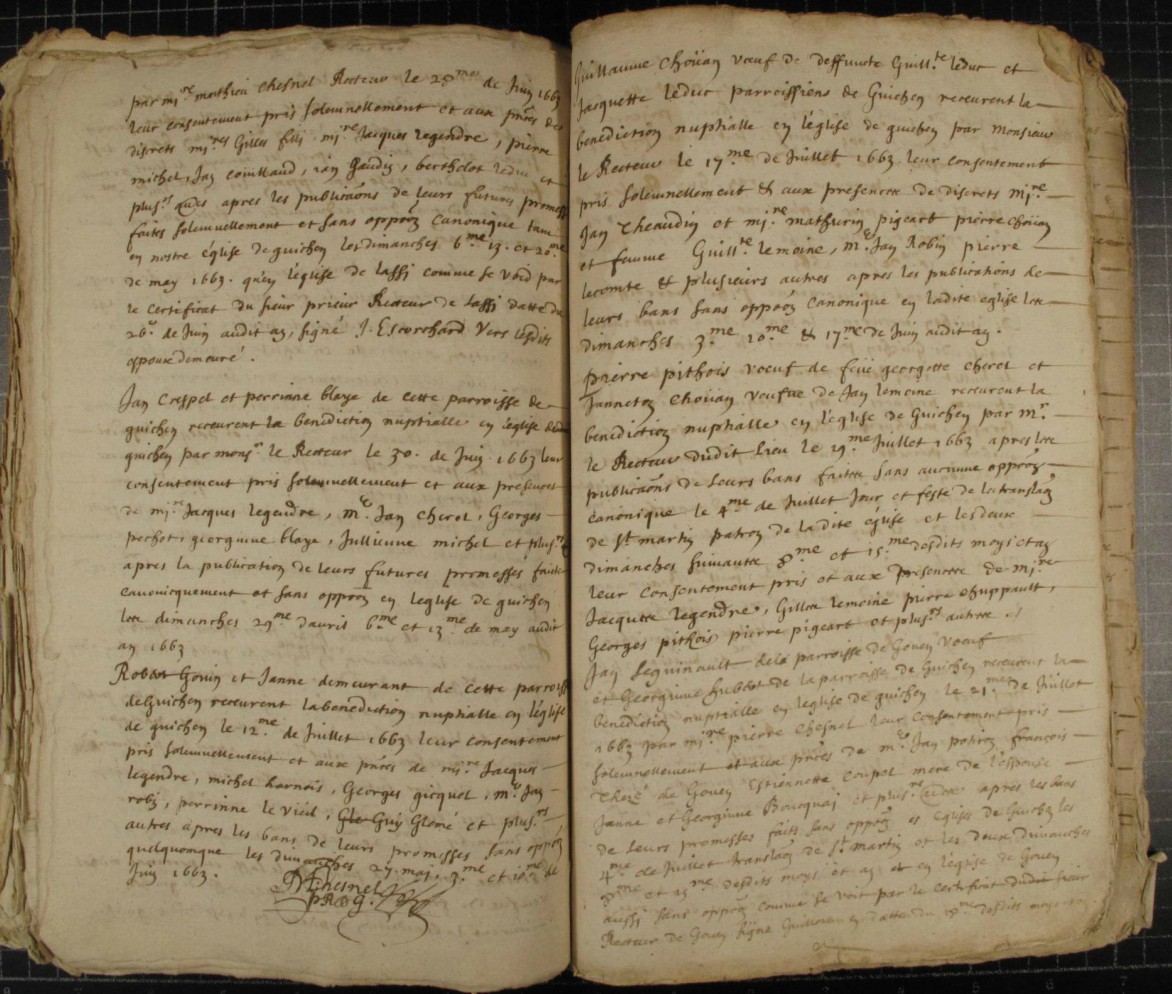 par mi.re mathieu chesnel Recteur le 28.me de Juin 1663
leur consentement pris solemnellement et aux pnces de
discrets mi.res Gilles fili mi.re Jacques legendre, pierre
michel, Jan couillaud, Jan Gaudin, berthelot leduc et
plus.rs apres les publicaons de leurs futures promess
faits solemnellement et sans oppoon canonique tant
en nostre église de guichen les dimanches 6.me 13. et 20.me
de may 1663. qu'en l'église de lassi comme se void par
le certificat du sieur prieur Recteur de lassi datte du
26. de Juin audit an, signé J. Escorchard vers lesdits
espoux demeuré.
Jan Crespel et perrinne blaye de cette parroisse de
guichen receurent la benediction nuptialle en leglise dud
guichen par mons.r le Recteur le 30. de Juin 1663 leur
consentement pris solemnellement et aux presences
de mi.re Jacques legendre, m.e Jan cherel, Georges
pechot, georginne blaye, Jullienne michel et plus.rs
apres la publication de leurs futures promesses faicte
canonicquement et sans oppoon en leglise de guichen
les dimanches 29.me davril 6.me et 13.me de may audit
an 1663
Robert Gouin et Janne demeurant de cette parroiss
de Guichen receurent la benediction nuptialle en l'église
de guichen le 12.me de Juillet 1663 leur consentement
pris solemnellement et aux pnces de mi.re Jacques
legendre, michel harnois, Georges gicquel, m.e Jan
robin, perrinne le vieil, Guy Glomé et plus.rs
autres apres les bans de leurs promesses sans oppoon
quelquonque les dimanches 27. may, 3.me et 10.me de
Juin 1663.
Chesnel
Guillaume Choüan vœuf de deffuncte Guill.te leduc et
Jacquette leduc parroissiens de Guichen receurent la
benediction nuptialle en l'église de guichen par Monsieur
le Recteur le 17.me de Juillet 1663 leur consentement
pris solemnellement & aux presences de discrets mi.re
Jan Theaudin et mi.re mathurin pigeart pierre choüan
et femme Guill.te lemoine, m.e Jan Robin pierre
lecomte et plusieurs autres apres les publications de
leurs bans sans oppoon canonique en ladite eglise les
dimanches 3.me 10.me & 17.me de Juin audit an.
pierre pithois vœuf de feüe georgette cherel et
Janneton Choüan veufue de Jan lemoine receurent la
benediction nuptialle en l'église de Guichen par m.r
le Recteur dudit lieu le 19.me Juillet 1663 apres les
publicaons de leurs bans faites sans aucunne oppoon
canonique le 4.me de Juillet Jour et feste de la translaon
de S.t martin patron de ladite église et les deux
dimanches suivants 8.me et 15.me desdits moys et an
leur consentement pris et aux presences de mi.re
Jacques legendre, Gilles lemoine pierre chuppault,
Georges pithois pierre pigeart et plus.rs autres.
Jan Seguinault de la parroisse de Goven vœuf
et Georginne hubert de la parroisse de Guichen receurent la
benediction nuptialle en leglise de guichen le 21.me de Juillet
1663 par mi.re pierre Chesnel leur consentement pris
solemnellement et aux pnces de m.e Jan potiron françois
de Goven Estiennette coupel mere de l'espouse
Janne et Georginne Boucquai et plus.rs apres les bans
de leurs promesses faits sans oppoon es eglises de Guichen les
4.me de Juillet translaon de S.t martin et les deux dimanches
8.me et 15.me desdits moys et an et en l'église de Goven
aussi sans oppoon comme se voit par le certificat dudit sieur
Recteur de Goven signé datté du 18.me desdits moys et an